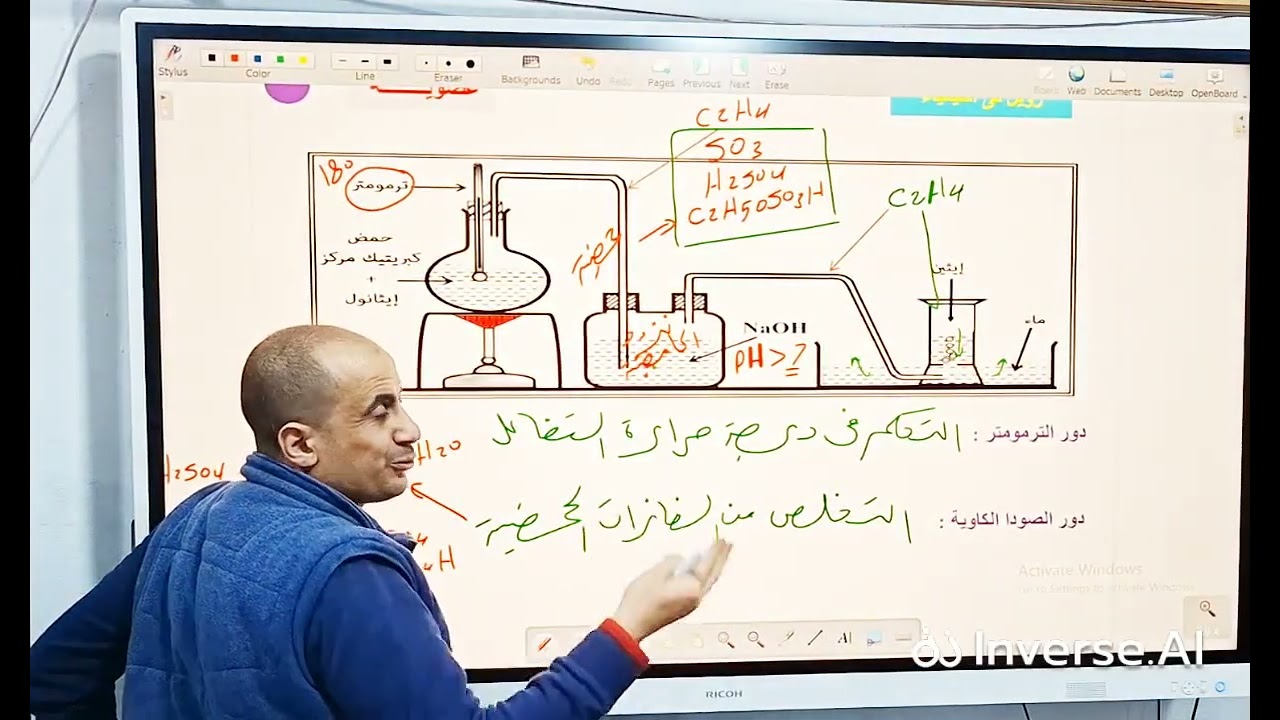 Stylus
Color
Line
Eraser
Backgrounds
Undo
Redo
Pages
Previous
Next
Erase
Board
Web
Documents
Desktop
OpenBoard
C2H4
SO3
H2SO4
C2H5OSO3H
C2H4
18°
ترمومتر
حمض
كبريتيك مركز
+
إيثانول
حمضية
إيثين
ماء
NaOH
pH > 7
دور الترمومتر : التحكم فى درجة حرارة التفاعل
H2O
H2SO4
دور الصودا الكاوية : التخلص من الغازات الحمضية
Activate Windows
Go to Settings to activate Windows
RICOH
Inverse.AI